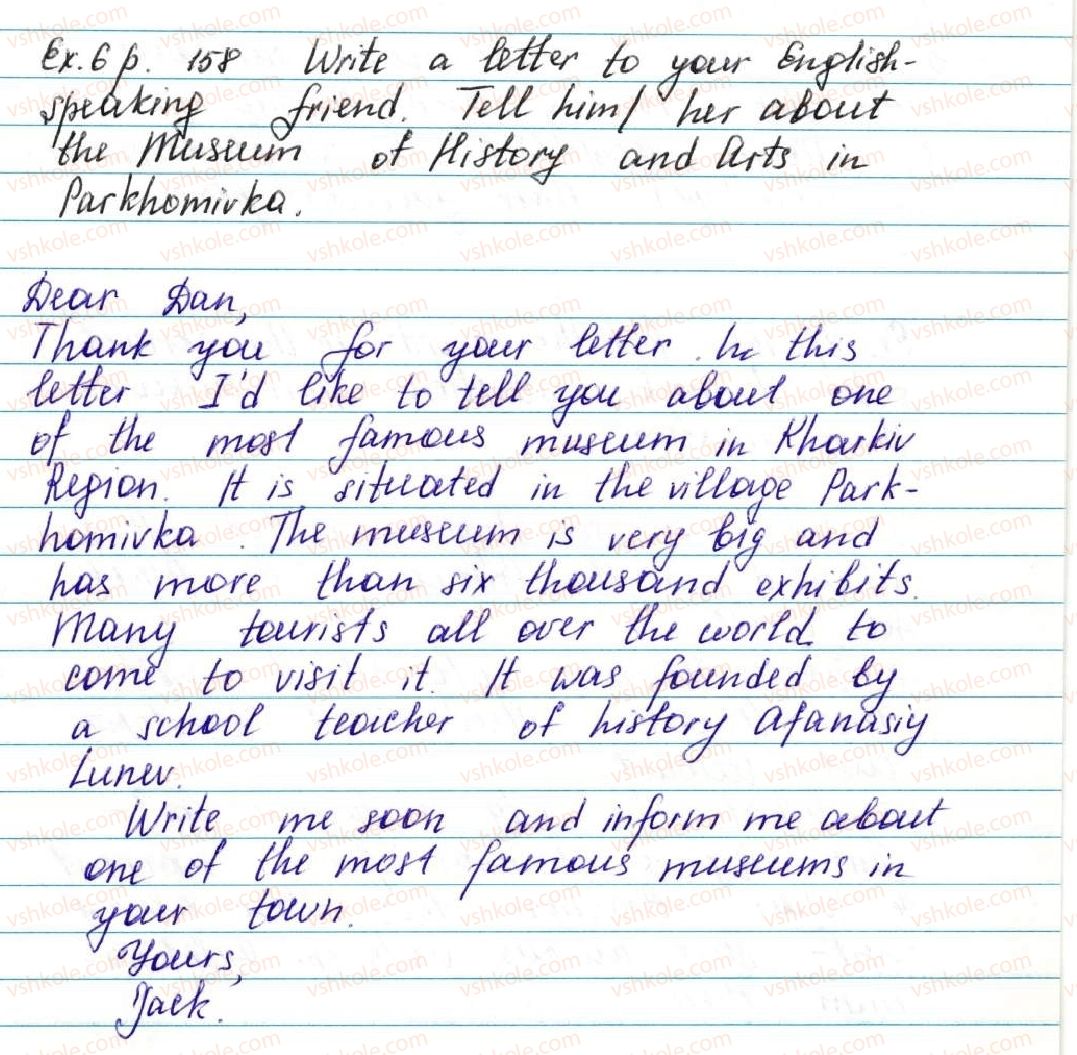 Ex. 6 p. 158 Write a letter to your English-
speaking friend. Tell him/ her about
the Museum of History and Arts in
Parkhomivka.
Dear Dan,
Thank you for your letter. In this
letter I'd like to tell you about one
of the most famous museum in Kharkiv
Region. It is situated in the village Park-
homivka. The museum is very big and
has more than six thousand exhibits.
Many tourists all over the world to
come to visit it. It was founded by
a school teacher of history Afanasiy
Lunev.
Write me soon and inform me about
one of the most famous museums in
your town.
Yours,
Jack.